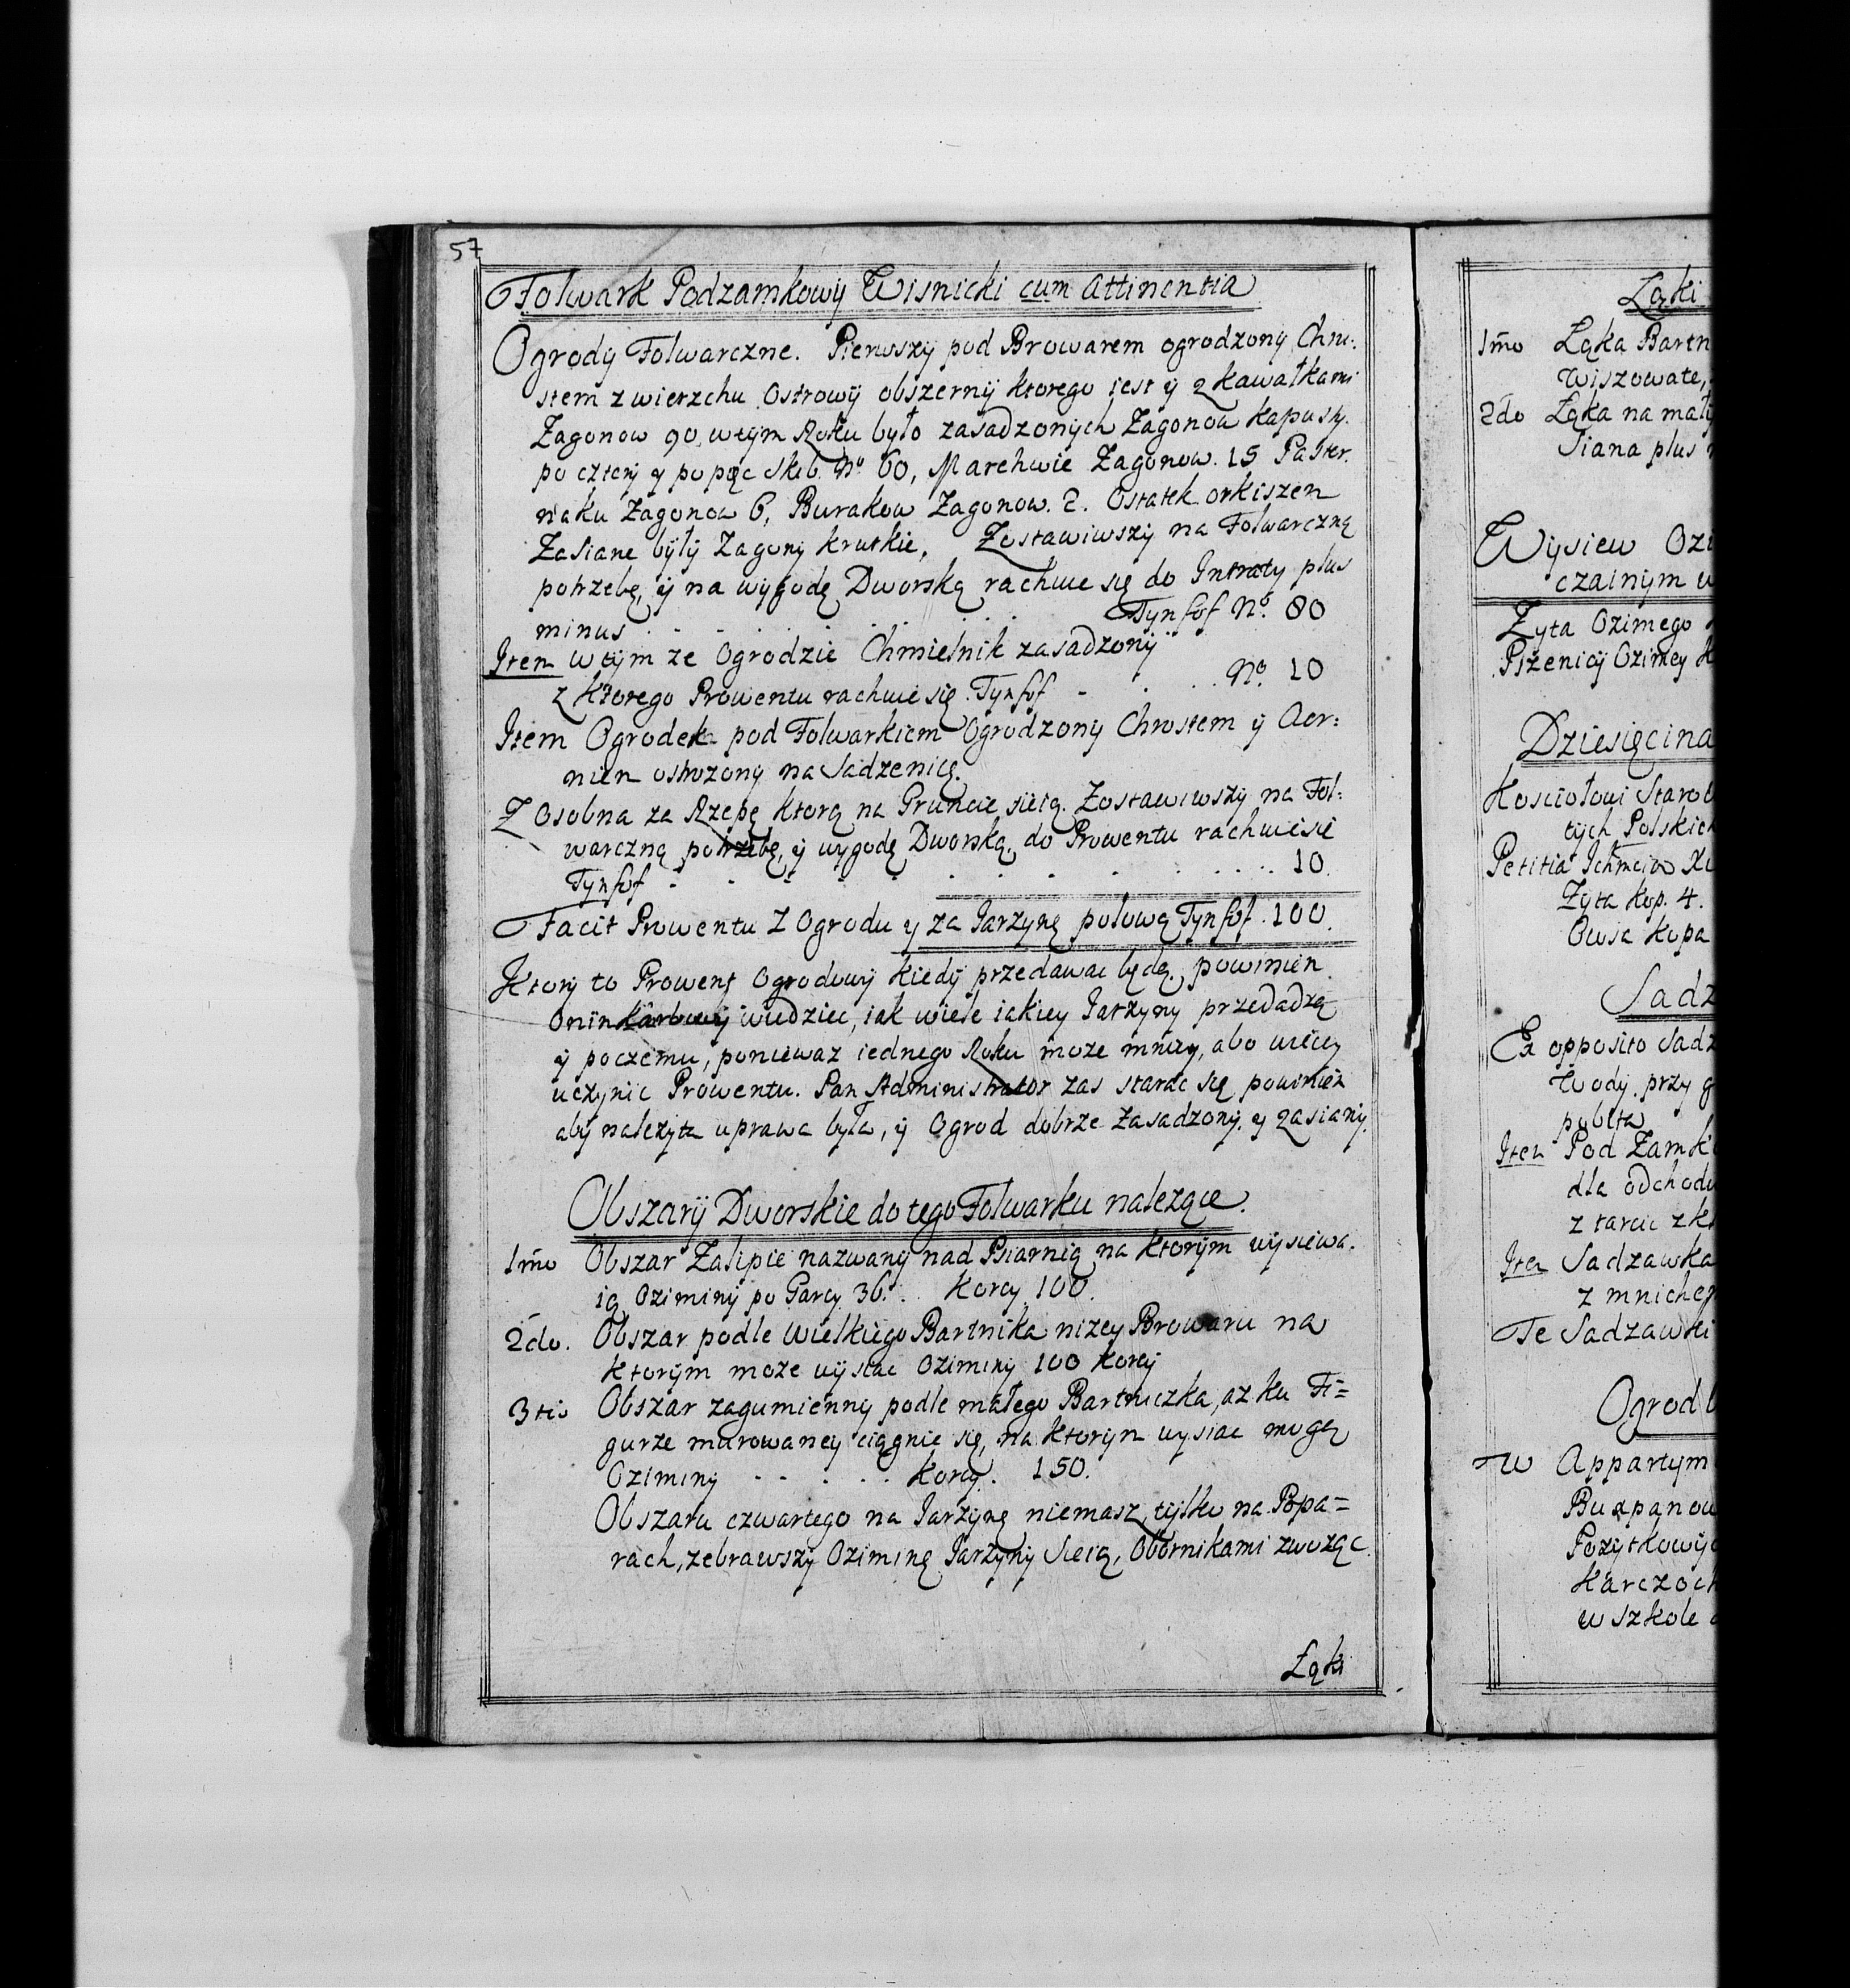 57
Folwark Podzamkowy Wisnicki cum Attinentia
Ogrody Folwarczne. Pierwszy pod Browarem ogrodzony Chru:
stem z wierzchu Ostrowy obszerny ktorego iest y z kawałkami
Zagonow 90, w tym Roku było zasadzonych Zagonow kapusty.
po cztery y po pęc skib. No. 60, Marchwie Zagonow. 15 Paster.
naku Zagonow 6, Burakow Zagonow. 2. Ostatek orkiszem
Zasiane były Zagony krutkie, Zostawiwszy na Folwarczną
potrzebę, y na wygodę Dworską rachuie się do Intraty plus
minus . . . . . . . . Tynfof No. 80
Item w tym ze Ogrodzie Chmielnik zasadzony
z ktorego Prowentu rachuie się. Tynfof - . . . No. 10
Item Ogrodek pod Folwarkiem Ogrodzony Chrostem y
nien ostrozony na Sadzenicę.
Z Osobna za Rzepę ktorą na Gruncie sieią. Zostawiwszy na Fol:
warczną potrzebę, y wygodę Dworską, do Prowentu rachuie sie
Tynfof - - - - . . . . . . . . 10.
Facit Prowentu Z Ogrodu y za Jarzynę polową Tynfof. 100.
Ktory to Prowent Ogrodowy kiedy przedawac będą, powinien
Onin karbowy wiedziec, iak wiele iakiey Jarzyny przedadzą
y poczemu, poniewaz iednego Roku moze mniey, abo wiecey
uczynic Prowentu. Pan Administrator zas starac się powinien
aby nalezyta uprawa była, y Ogrod dobrze zasadzony, y zasiany.
Obszary Dworskie do tego Folwarku nalezące.
1mo Obszar Zalipie nazwany nad Psiarnią na ktorym wysiewa.
ią Oziminy po Garcy 36. . . Korcy. 100.
2do. Obszar podle Wielkiego Bartnika nizey Browaru na
ktorym moze wysiac Oziminy 100 Korcy
3tio Obszar zagumienny podle małego Bartniczka, az ku Fi=
gurze murowaney ciągnie się, na ktorym wysiac mogą
Oziminy - - . . . Korcy. 150.
Obszaru czwartego na Jarzynę niemasz, tylko na Popa=
rach, zebrawszy Oziminę Jarzyny Sieią, Obornikami zwożąc.
Łąki
Łąki
1mo Łąka Bartn
Wiszowate,
2do Łąka na mały
Siana plus
Wysiew Ozi
czainym
Zyta Ozimego
Pszenicy Ozimey
Dziesięcina
Kosciołowi Staro
tych Polskich
Petitia
Zyta kop. 4.
Owsa kopa
Sadz
Ex opposito Sadz
Wody przy
pobita
Item Pod Zamk
dla odchodu
z tarcic z
Item Sadzawka
z mnichem
Te Sadzawki
Ogrod
W Appartym
Buxpanow
Pozytkowy
Karczoch
w szkole